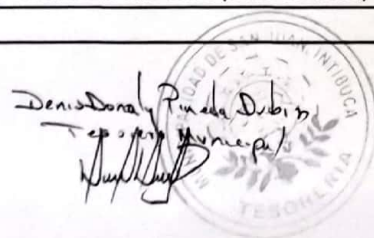 Denis Donaly Pineda Dubin
Tesorero Municipal
MUNICIPALIDAD DE SAN JUAN, INTIBUCA
TESORERIA